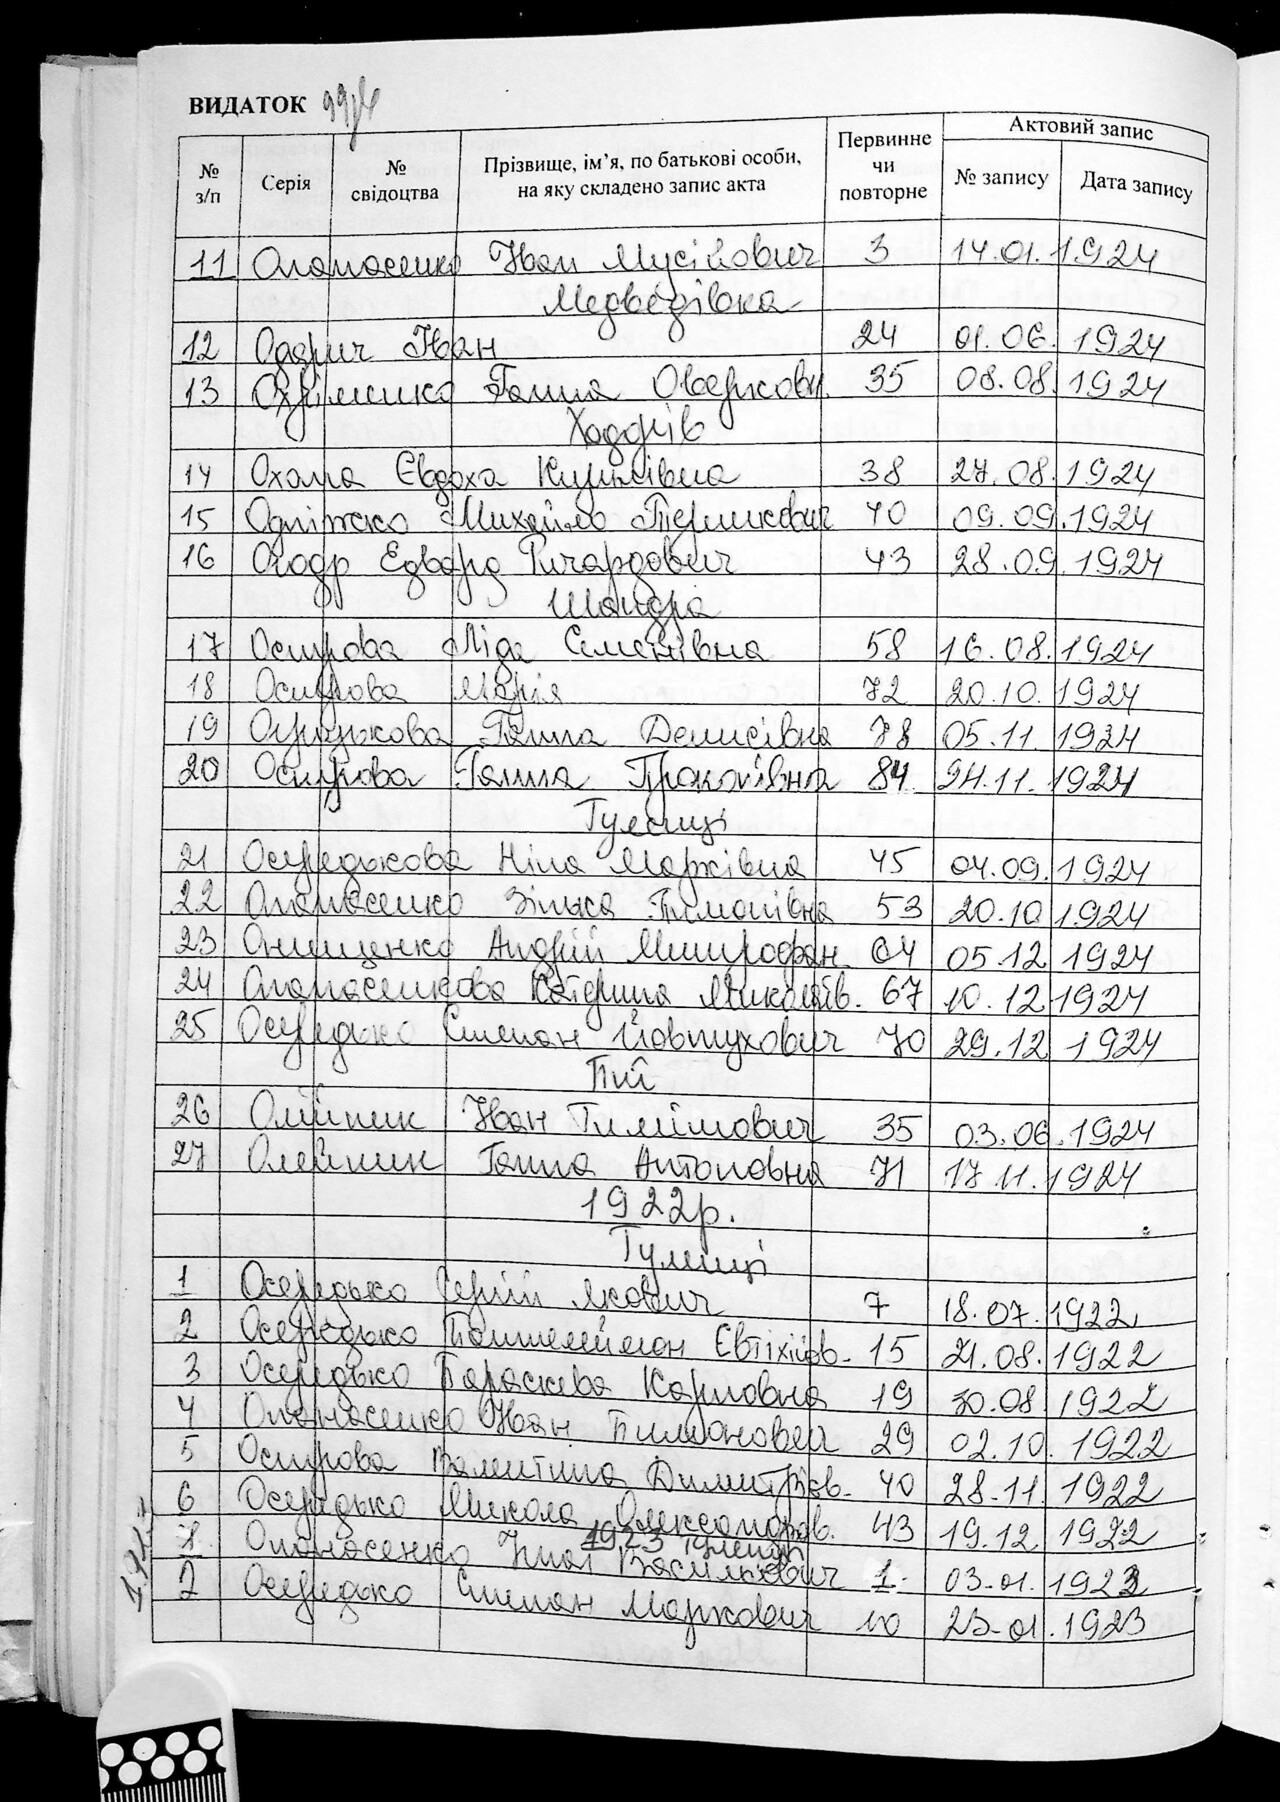 ВИДАТОК
№ з/п Серія № свідоцтва Прізвище, ім’я, по батькові особи, на яку складено запис акта Первинне чи повторне Актовий запис № запису Дата запису
11 Опанасенко Іван Мусійович 3 14.01. 1924
Медведівка
12 Одарич Іван 24 01.06. 1924
13 Охріменко Ганна Оверков. 35 08.08. 1924
Ходорів
14 Охота Євдоха Кирилівна 38 27.08. 1924
15 Михайло 40 09.09. 1924
16 Едвард Ричардович 43 28.09. 1924
Шандра
17 Острова Ліда Семенівна 58 16.08. 1924
18 Острова Марія 72 20.10. 1924
19 Ганна Денисівна 78 05.11. 1924
20 Острова Ганна Прокопівна 84 24.11. 1924
Тулинці
21 Осередькова Ніна Марківна 45 04.09. 1924
22 Опанасенко Зінька Тимошівна 53 20.10 1924
23 Онищенко Андрій Митрофан 64 05.12 1924
24 Опанасенкова Катерина Миколаїв. 67 10.12 1924
25 Осередько Степан Йовтухович 70 29.12 1924
Пії
26 Олійник Іван 35 03.06. 1924
27 Олейник Ганна Антоновна 71 17.11. 1924
1922р.
Тулинці
1 Осередько Сергій Якович 7 18.07. 1922
2 Осередько Пантелеймон Євтіхіїв. 15 21.08. 1922
3 Осередько Параскева Карповна 19 30.08 1922
4 Опанасенко Іван 29 02.10. 1922
5 Острова Валентина Димитрієв. 40 28.11 1922
6 Осередько Микола Олександров. 43 19.12. 1922
1923 Тулинці
1 Опанасенко Василієвич 1 03.01. 1923
2 Осередько Степан Маркович 10 23.01. 1923